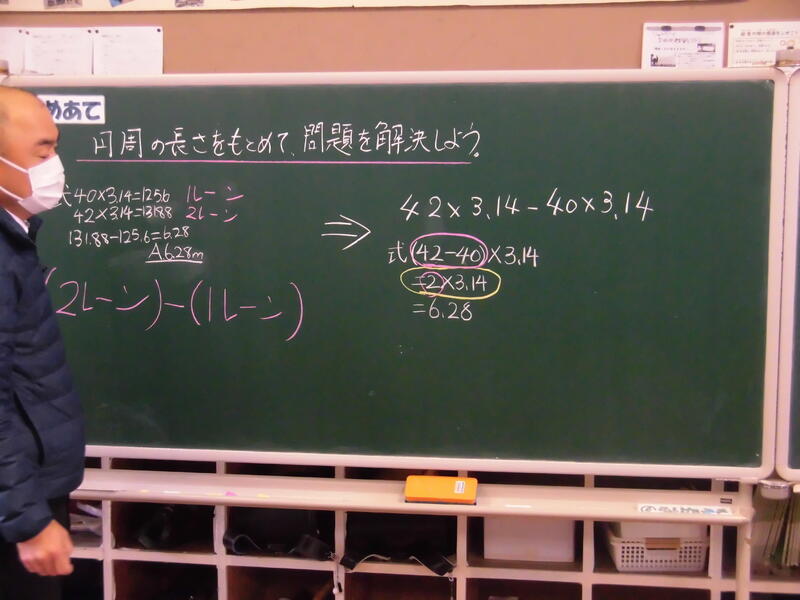 めあて
円周の長さをもとめて、問題を解決しよう。
式 40×3.14=125.6 1レーン
42×3.14=131.88 2レーン
131.88-125.6=6.28
A 6.28m
(2レーン)-(1レーン)
⇒ 42×3.14-40×3.14
式 (42-40)×3.14
=2×3.14
=6.28